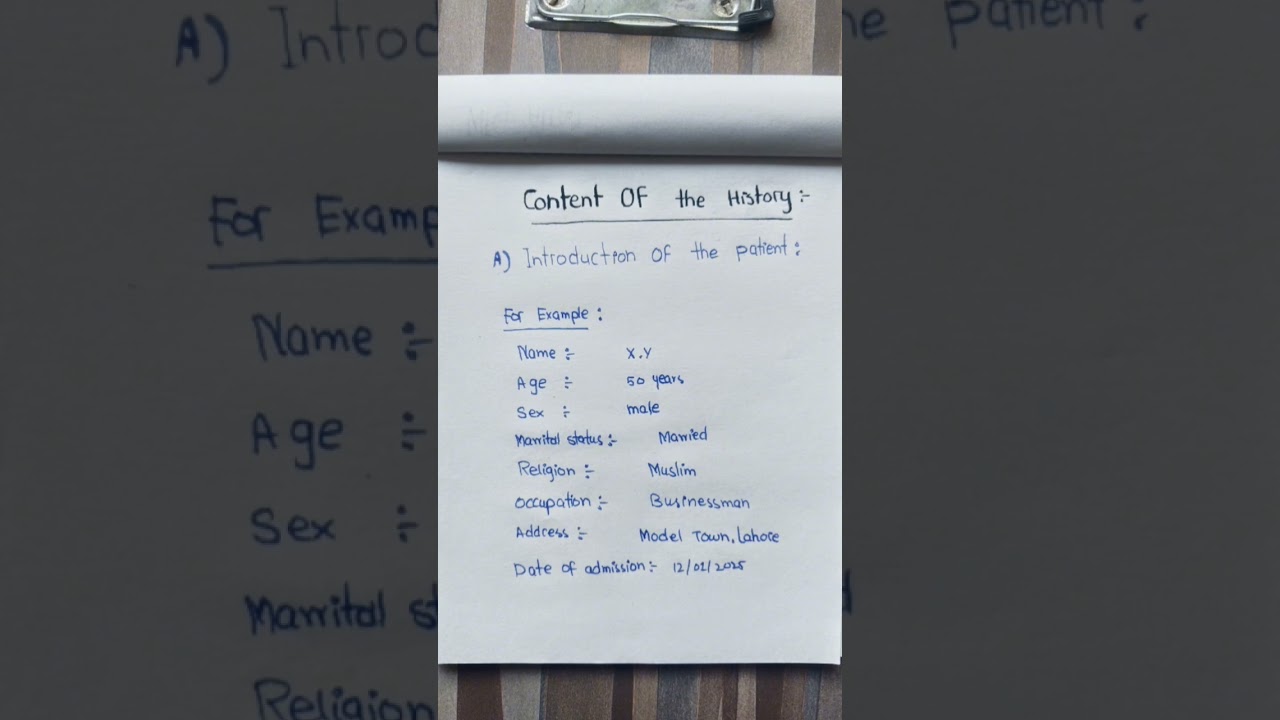 Content Of the History:-
A) Introduction Of the patient:
For Example:
Name :- X.Y
Age :- 50 years
Sex :- male
Marrital status:- Married
Religion :- Muslim
Occupation:- Businessman
Address:- Model Town, Lahore
Date of admission:- 12/01/2025